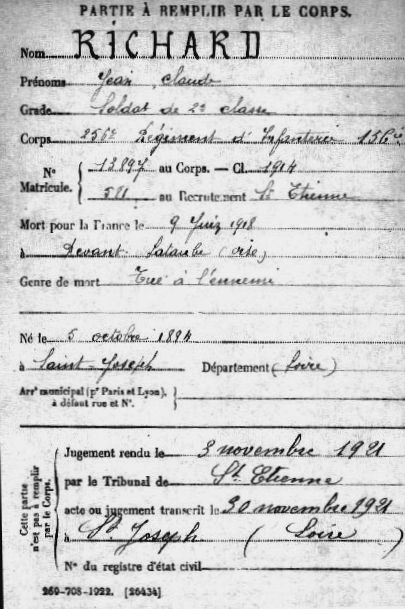 PARTIE À REMPLIR PAR LE CORPS.
Nom RICHARD
Prénoms Jean Claude
Grade Soldat de 2e classe
Corps 256e Régiment d'Infanterie 156e
N° Matricule. { 13897 au Corps. — Cl. 1914
581 au Recrutement St Etienne
Mort pour la France le 9 Juin 1918
à Devant (Oise)
Genre de mort Tué à l'ennemi
Né le 5 octobre 1894
à Saint-Joseph Département (Loire)
Arrt municipal (pr Paris et Lyon), à défaut rue et N°. }
Cette partie n'est pas à remplir par le Corps.
Jugement rendu le 3 novembre 1921
par le Tribunal de St. Etienne
acte ou jugement transcrit le 30 novembre 1921
à St. Joseph (Loire)
N° du registre d'état civil
269-708-1922. [26434]